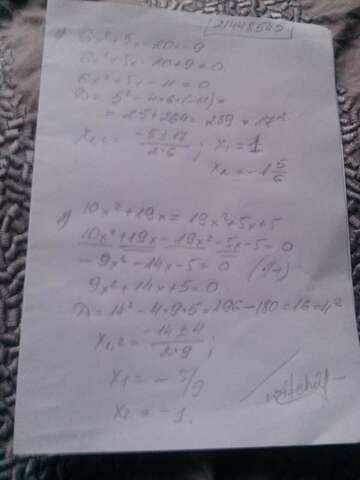 21448545
1) 6x²+5x-20=-9
6x²+5x-20+9=0
6x²+5x-11=0
D= 5²-4*6*(-11)=
= 25+264=289=17²
x1,2= (-5±17)/(2·6) ; x1=1
x2=-1 5/6
2) 10x²+19x=19x²+5x+5
10x²+19x-19x²-5x-5=0
-9x²-14x-5=0
9x²+14x+5=0
D=14²-4*9*5=196-180=16=4²
x1,2= (-14±4)/(2·9) ;
x1=-5/9
x2=-1.